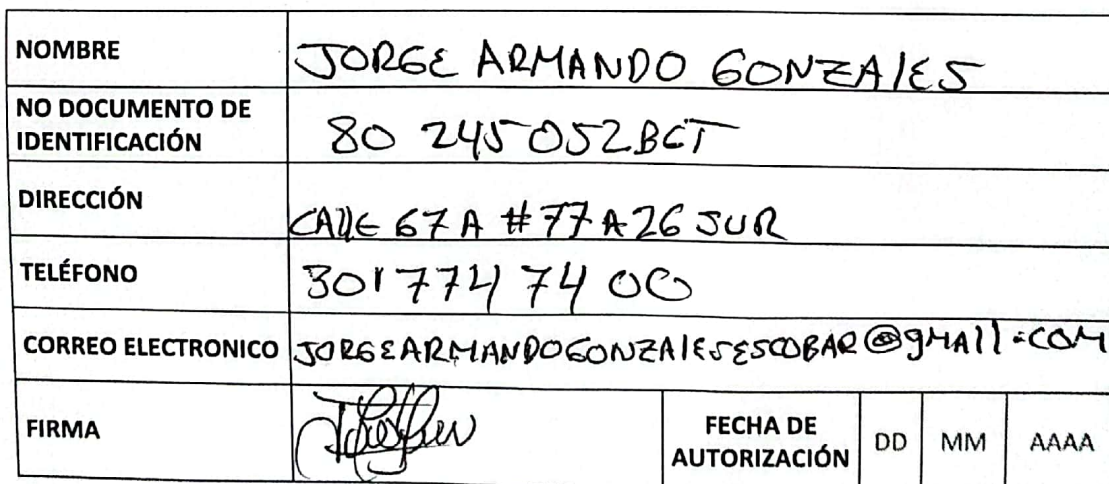 NOMBRE JORGE ARMANDO GONZAlES
NO DOCUMENTO DE
IDENTIFICACIÓN 80 245052BCT
DIRECCIÓN CAllE 67 A # 77 A 26 SUR
TELÉFONO 301 774 74 00
CORREO ELECTRONICO JORGEARMANDOGONZAlESESCOBAR@gMAIl.COM
FIRMA FECHA DE
AUTORIZACIÓN DD MM AAAA